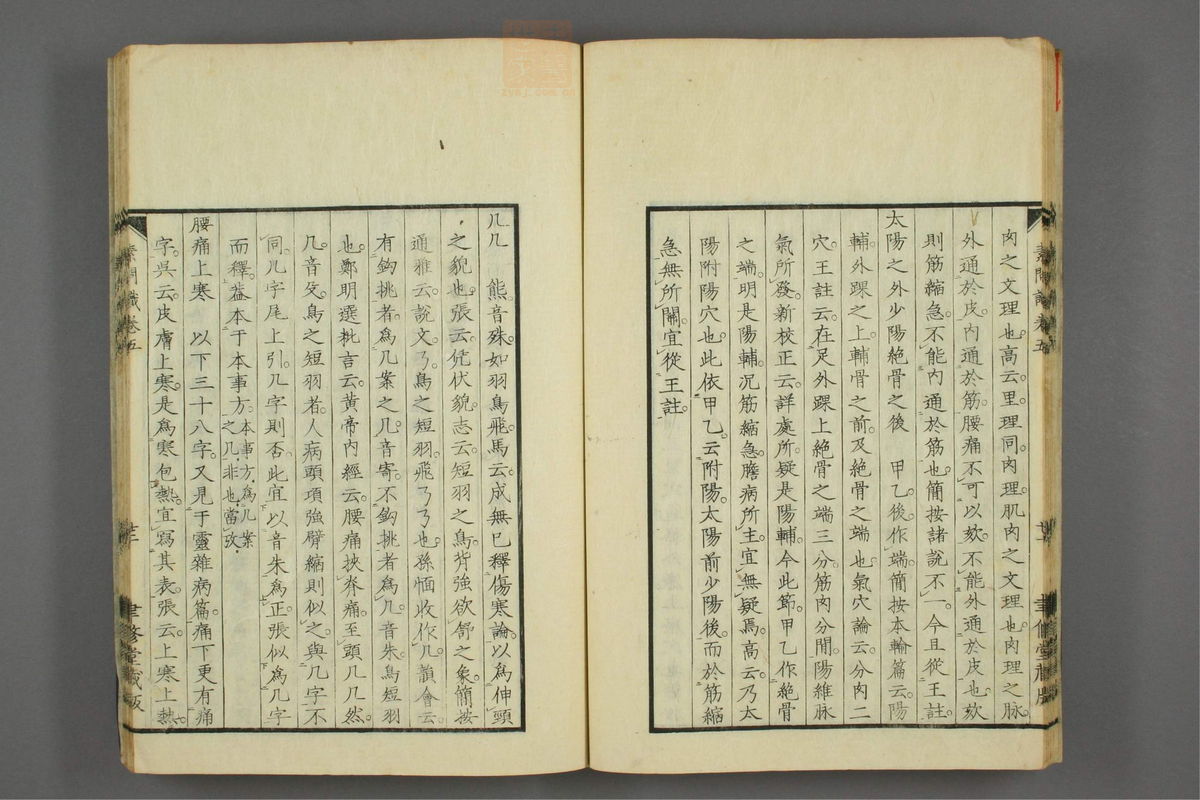 肉之文理也。高云。里理同。肉理。肌肉之文理也。肉理之脉。
外通於皮。內通於筋。腰痛不可以欬。不能外通於皮也。欬
則筋縮急。不能內通於筋也。簡按諸說不一。今且從王註。
太陽之外少陽絕骨之後 甲乙。後作端。簡按本輸篇云。陽
輔。外踝之上。輔骨之前。及絕骨之端也。氣穴論云。分肉二
穴。王註云。在足外踝上絕骨之端三分。筋肉分間。陽維脉
氣所發。新校正云。詳處所疑是陽輔。今此節。甲乙作絕骨
之端。明是陽輔。況筋縮急。膽病所主。宜無疑焉。高云。乃太
陽附陽穴也。此依甲乙。云附陽。太陽前少陽後。而於筋縮
急無所關。宜從王註。
几几 熊。音殊。如羽鳥飛。馬云。成無已釋傷寒論。以爲伸頸
之貌也。張云。凭伏貌。志云。短羽之鳥。背強欲舒之象。簡按
通雅云。說文。乃。鳥之短羽。飛乃乃也。孫愐收作几。韻會云。
有鉤挑者。爲几案之几。音寄。不鉤挑者。爲几。音朱。鳥短羽
也。鄭明選秕言云。黃帝內經云。腰痛挾脊痛。至頭几几然。
几。音殳。鳥之短羽者。人病頭項強臂縮則似之。與几字不
同。几字尾上引。几字則否。此宜以音朱爲正。張似爲几字
而釋。蓋本于本事方。本事方。爲几案之几。非也。當改。
腰痛上寒 以下三十八字。又見于靈雜病篇。痛下更有痛
字。吳云。皮膚上寒。是爲寒包熱。宜寫其表。張云。上寒上熱
素問識卷五
聿修堂藏版
素問識卷五
聿修堂藏版